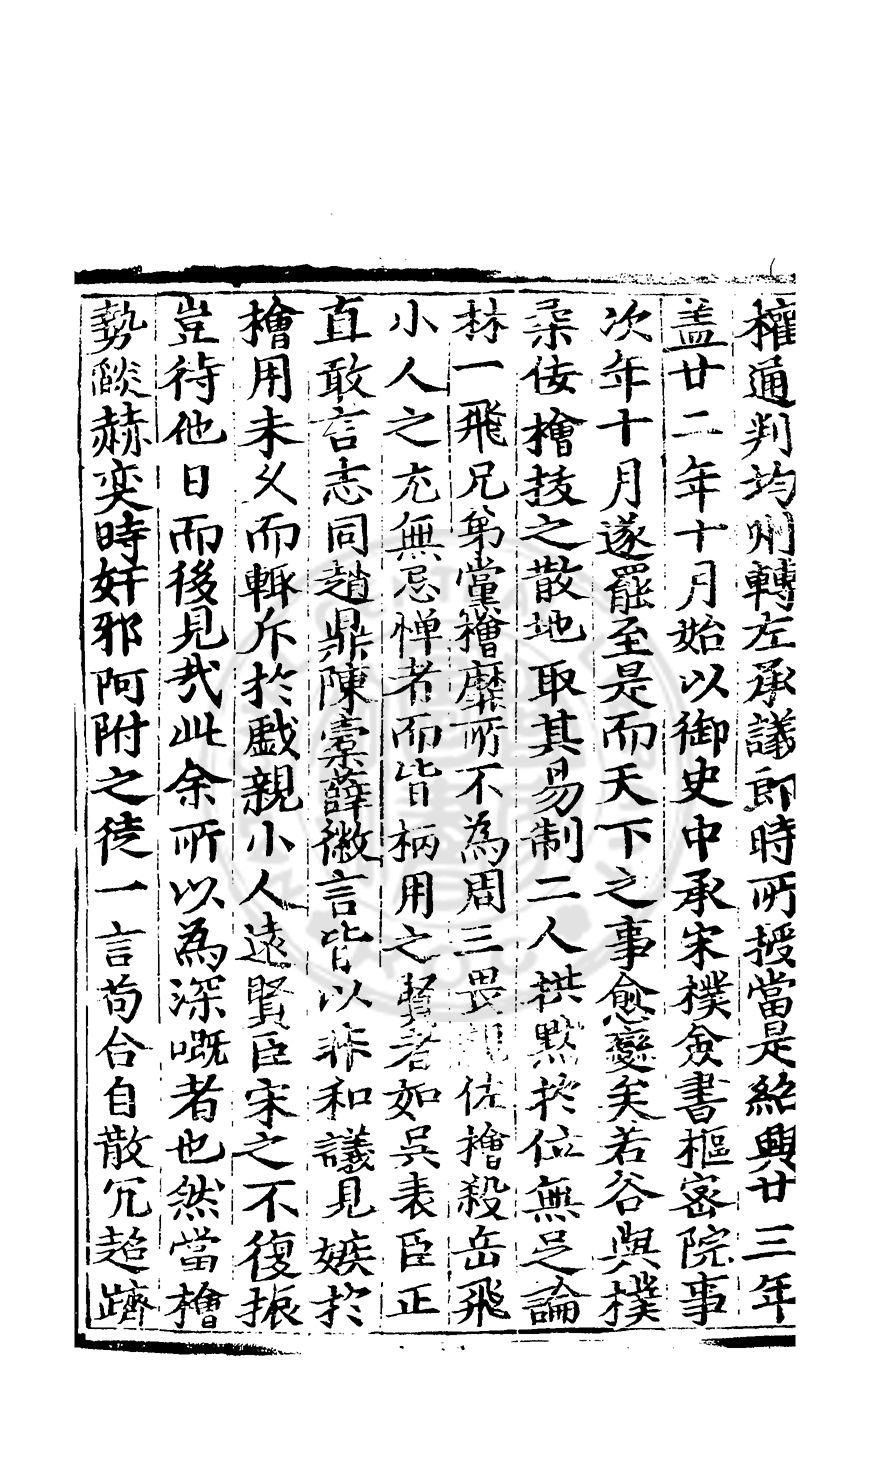 權通判均州轉左承議郎時所授當是紹興廿三年
盖廿二年十月始以御史中承宋樸僉書樞密院事
次年十月遂罷至是而天下之事愈變矣若谷與樸
柔佞檜拔之散地取其易制二人拱默於位無足論
林一飛兄弟黨檜靡所不為周三畏 佐檜殺岳飛
小人之尤無忌憚者而皆柄用之賢者如吳表臣正
直敢言志同趙鼎陳槖薛徽言皆以非和議見嫉於
檜用未久而輒斥於戲親小人遠賢臣宋之不復振
豈待他日而後見㦲此余所以為深嘅者也然當檜
勢燄赫奕時奸邪阿附之徒一言苟合自散冗超躋